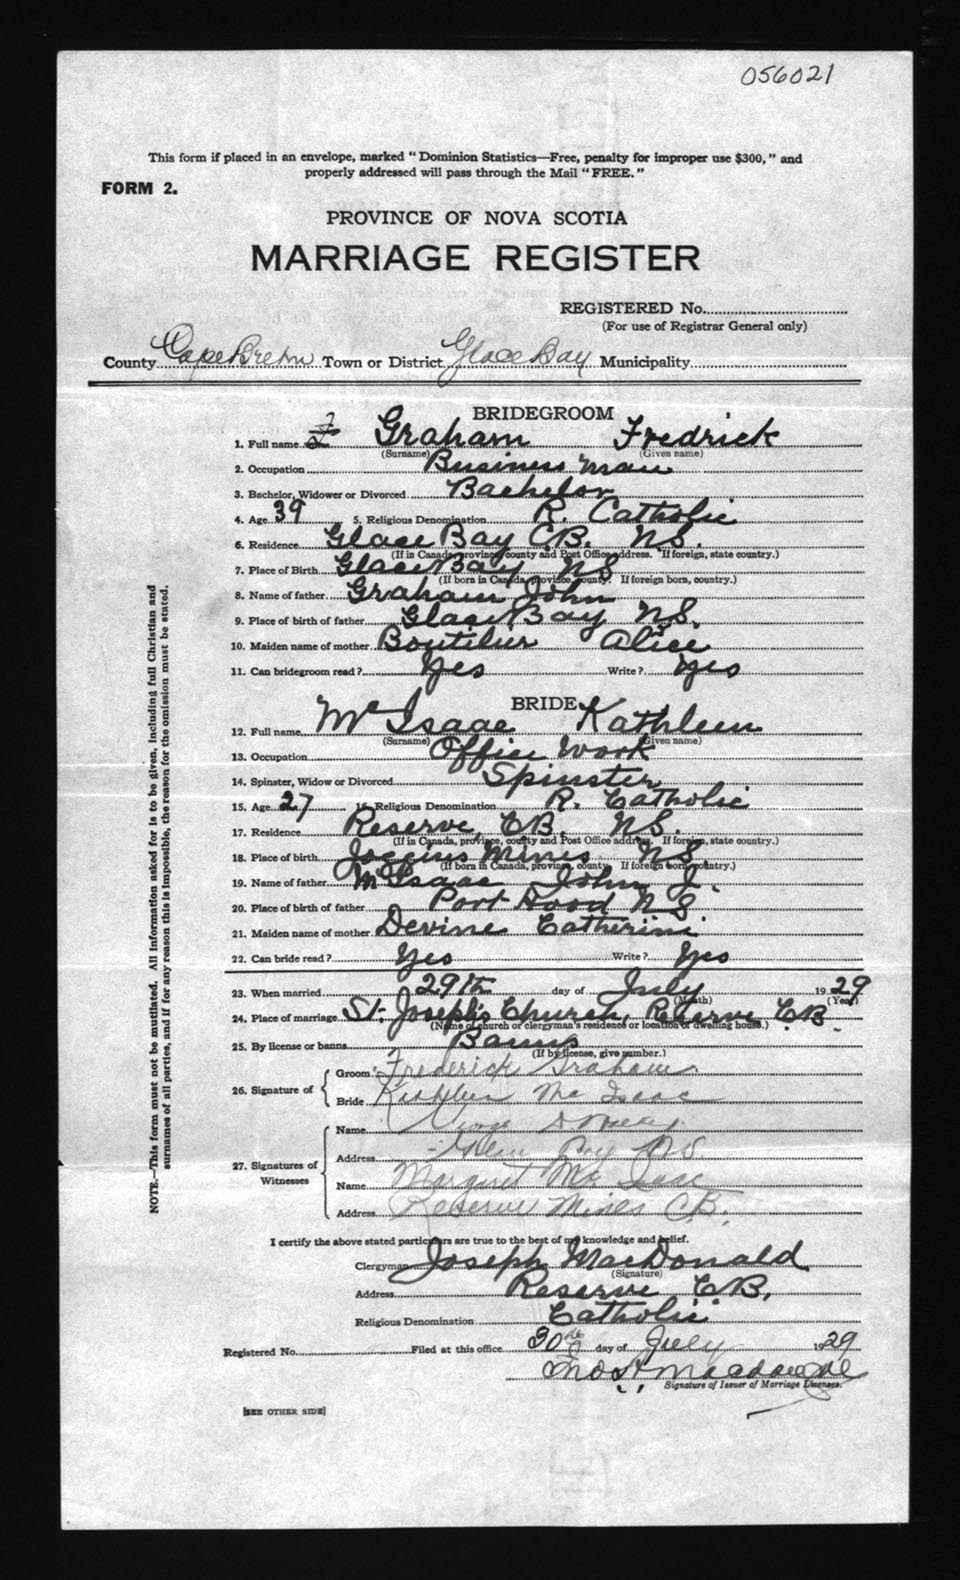 056021
This form if placed in an envelope, marked "Dominion Statistics—Free, penalty for improper use $300," and
properly addressed will pass through the Mail "FREE."
FORM 2.
PROVINCE OF NOVA SCOTIA
MARRIAGE REGISTER
REGISTERED No.
(For use of Registrar General only)
County Cape Breton Town or District Glace Bay Municipality
BRIDEGROOM
1. Full name Graham Fredrick
(Surname) (Given name)
2. Occupation Business man
3. Bachelor, Widower or Divorced Bachelor
4. Age 39 5. Religious Denomination R. Catholic
6. Residence Glace Bay C.B. N.S.
(If in Canada, province, county and Post Office address. If foreign, state country.)
7. Place of Birth Glace Bay N.S.
(If born in Canada, province, county. If foreign born, country.)
8. Name of father Graham John
9. Place of birth of father Glace Bay N.S.
10. Maiden name of mother Boutilier Alice
11. Can bridegroom read? Yes Write? Yes
BRIDE
12. Full name McIsaac Kathleen
(Surname) (Given name)
13. Occupation Office Work
14. Spinster, Widow or Divorced Spinster
15. Age 27 16. Religious Denomination R. Catholic
17. Residence Reserve, C.B. N.S.
(If in Canada, province, county and Post Office address. If foreign, state country.)
18. Place of birth Joggins Mines N.S.
(If born in Canada, province, county. If foreign born, country.)
19. Name of father McIsaac John J.
20. Place of birth of father Port Hood N.S.
21. Maiden name of mother Devine Catherine
22. Can bride read? Yes Write? Yes
23. When married 29th day of July 1929
(Month) (Year)
24. Place of marriage St. Joseph's Church, Reserve C.B.
(Name of church or clergyman's residence or location of dwelling house.)
25. By license or banns Banns
(If by license, give number.)
26. Signature of
Groom Frederick Graham
Bride Kathleen McIsaac
27. Signatures of Witnesses
Name
Address Glace Bay N.S.
Name Margaret McIsaac
Address Reserve Mines C.B.
I certify the above stated particulars are true to the best of my knowledge and belief.
Clergyman Joseph MacDonald
(Signature)
Address Reserve C.B.
Religious Denomination Catholic
Registered No. Filed at this office 30th day of July 1929
Signature of Issuer of Marriage Licenses.
[SEE OTHER SIDE]
NOTE.—This form must not be mutilated. All information asked for is to be given, including full Christian and
surnames of all parties, and if for any reason this is impossible, the reason for the omission must be stated.